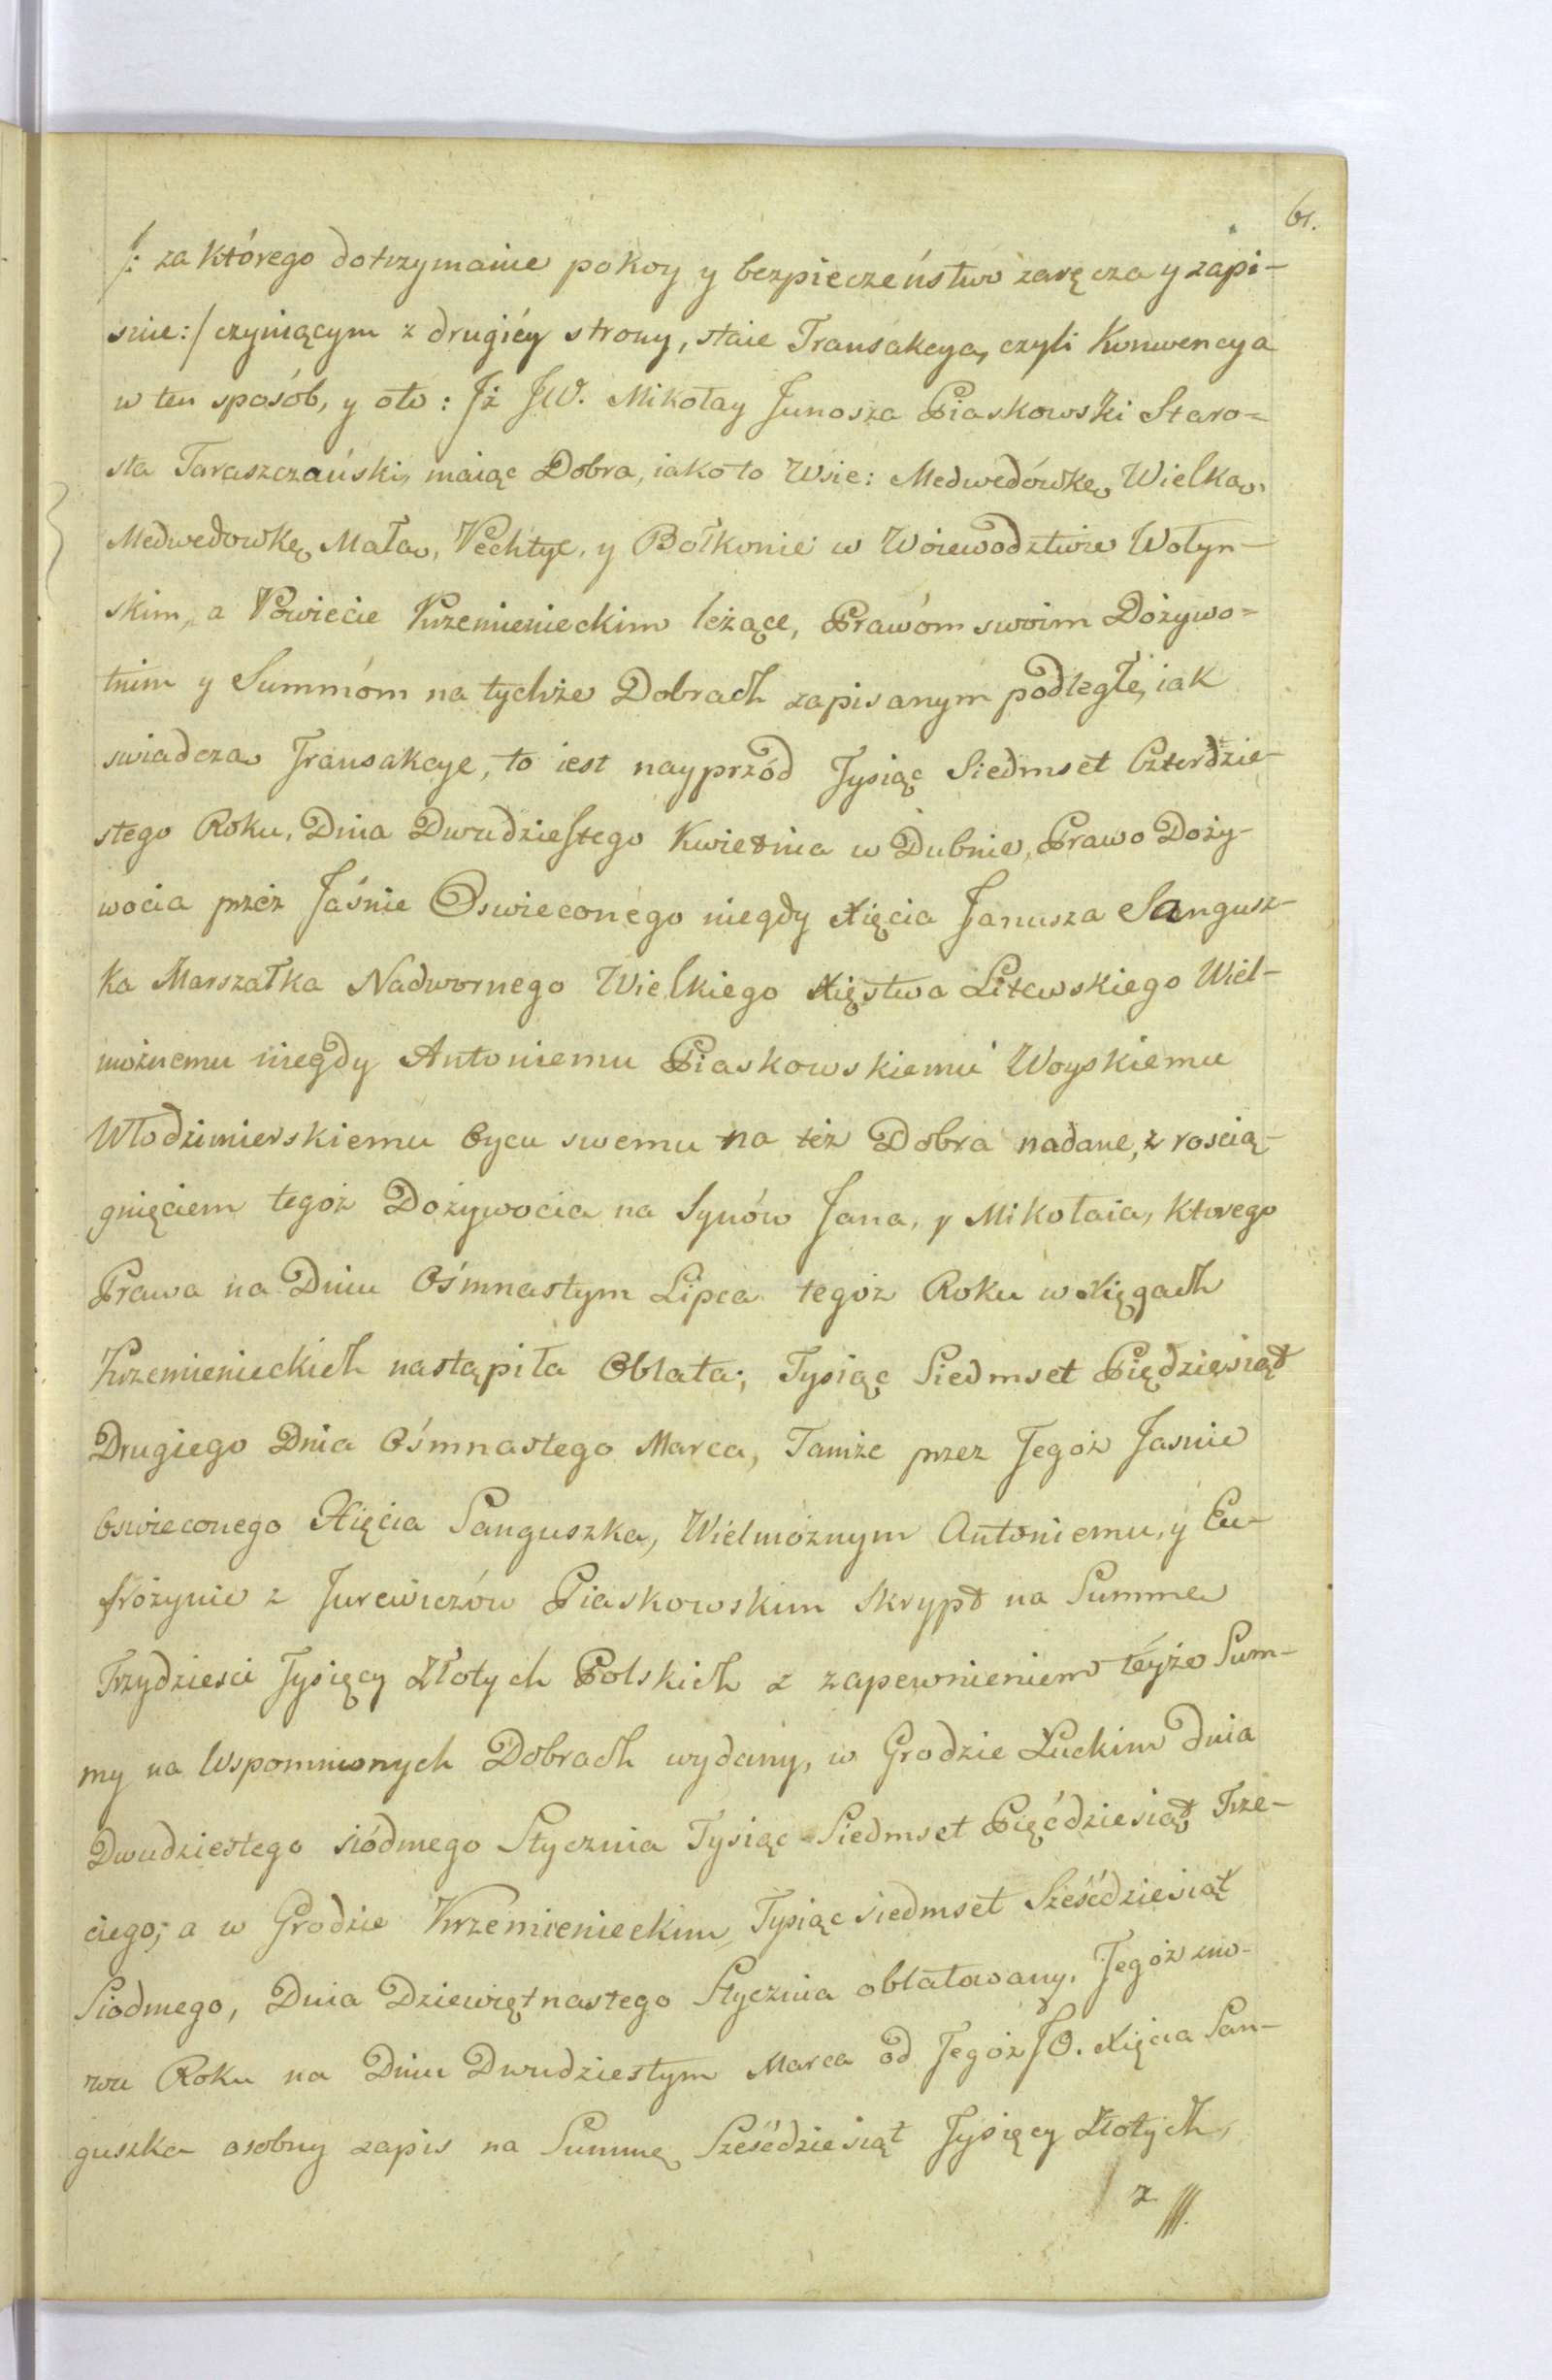 61.
/: za którego dotrzymanie pokoy y bezpieczeństwo zaręcza y zapi-
suie:/ czyniącym z drugiéy strony, staie Transakcya, czyli Konwencya
w ten sposób, y oto: Jż JW. Mikołay Junosza Piaskowski Staro=
sta Taraszczański, maiąc Dobra, iako to Wsie: Medwedówkę Wielką,
Medwedowkę Małą, Wechtyc, y Bołkonie w Woiewodztwie Wołyn-
skim, a Powiecie Krzemienieckim leżące, Prawóm swoim Dożywo=
tnim y Summóm na tychże Dobrach zapisanym podległe, iak
swiadczą Transakcye, to iest nayprzód Tysiąc Siedmset Czterdzie-
stego Roku, Dnia Dwudziestego Kwietnia w Dubnie, Prawo Doży-
wocia przez Jaśnie Oswieconego niegdy Xięcia Janusza Sangusz-
ka Marszałka Nadwornego Wielkiego Xięstwa Litewskiego Wiel-
możnemu niegdy Antoniemu Piaskowskiemu Woyskiemu
Włodzimierskiemu Oycu swemu na też Dobra nadane, z rością-
gnięciem tegoż Dożywocia na Synów Jana, y Mikołaia, ktorego
Prawa na Dniu Ośmnastym Lipca tegoż Roku w Xięgach
Krzemienieckich nastąpiła Oblata; Tysiąc Siedmset Piędziesiąt
Drugiego Dnia Ośmnastego Marca, Tamże przez Jegoż Jasnie
Oswieconego Xięcia Sanguszka, Wielmożnym Antoniemu, y Eu-
frozynie z Jurewiczów Piaskowskim Skrypt na Summę
Trzydziesci Tysięcy Złotych Polskich z zapewnieniem téyże Sum-
my na Wspomnionych Dobrach wydany, w Grodzie Łuckim dnia
Dwudziestego siódmego Stycznia Tysiąc Siedmset Pięćdziesiąt Trze-
ciego; a w Grodzie Krzemienieckim Tysiąc siedmset Sześćdziesiąt
Siodmego, Dnia Dziewiętnastego Stycznia oblatowany. Tegoż zno-
wu Roku na Dniu Dwudziestym Marca od Tegoż JO. Xięcia San-
guszka osobny zapis na Summę Sześćdziesiąt Tysięcy Złotych,
z